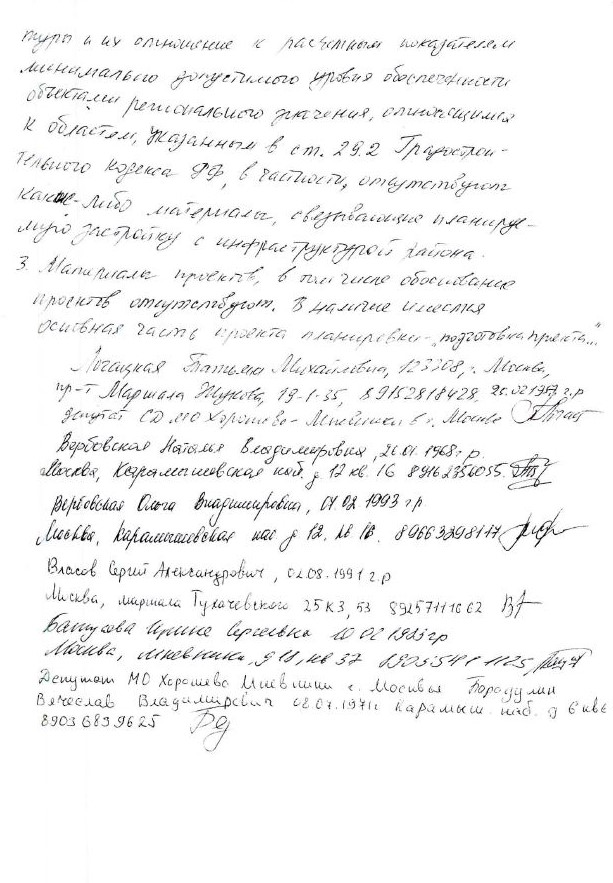 туры и их отношение к расчетным показателем
минимально допустимого уровня обеспеченности
объектами регионального значения, относящимся
к областям, указанным в ст. 29.2 Градострои-
тельного кодекса РФ, в частности, отсутствуют
какие-либо материалы, связывающие планируе-
мую застройку с инфраструктурой района.
3. Материалы проектов, в том числе обоснование
проектов отсутствуют. В наличие имеется
основная часть проекта планировки - "подготовка проекта..."
Татьяна Михайловна, 123308, г. Москва,
пр-т Маршала Жукова, 19-1-35, 89152818428, 20.02.1957 г.р
депутат СД МО Хорошево-Мневники в г. Москве
Вербовская Наталья Владимировна, 21.01.1968 г.р.
Москва, Карамышевская наб. д 12 кв. 16 89162356055.
Вербовская Ольга Владимировна, 07.02 1993 г.р
Москва, Карамышевская наб д 12. кв 16. 89663298177
Власов Сергей Александрович, 02.08.1991 г.р
Москва, маршала Тухачевского 25к3, 53 89257111662
Ирина Сергеевна 10 02 1983 гр
Москва, Мневники, д 19, кв 37
Депутат МО Хорошево Мневники г. Москвы Бородулин
Вячеслав Владимирович 08.07.1971г Карамыш. наб. д 6 кв6
8903 683 9625